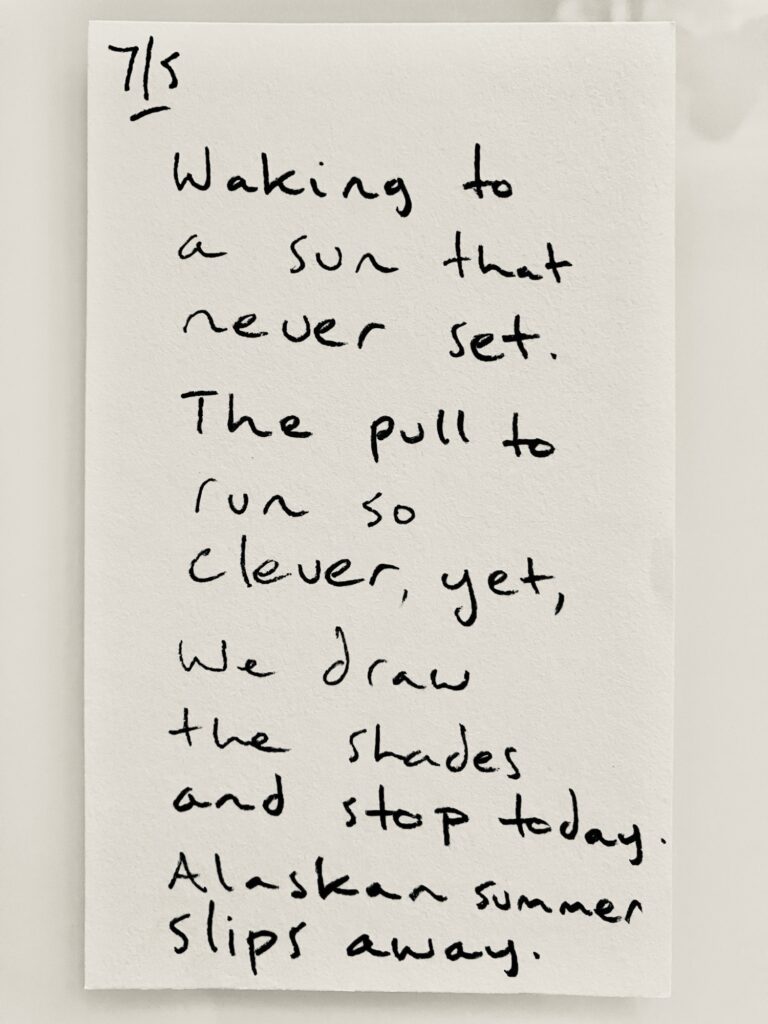 7/5
Waking to
a sun that
never set.
The pull to
run so
clever, yet,
we draw
the shades
and stop today.
Alaskan summer
slips away.